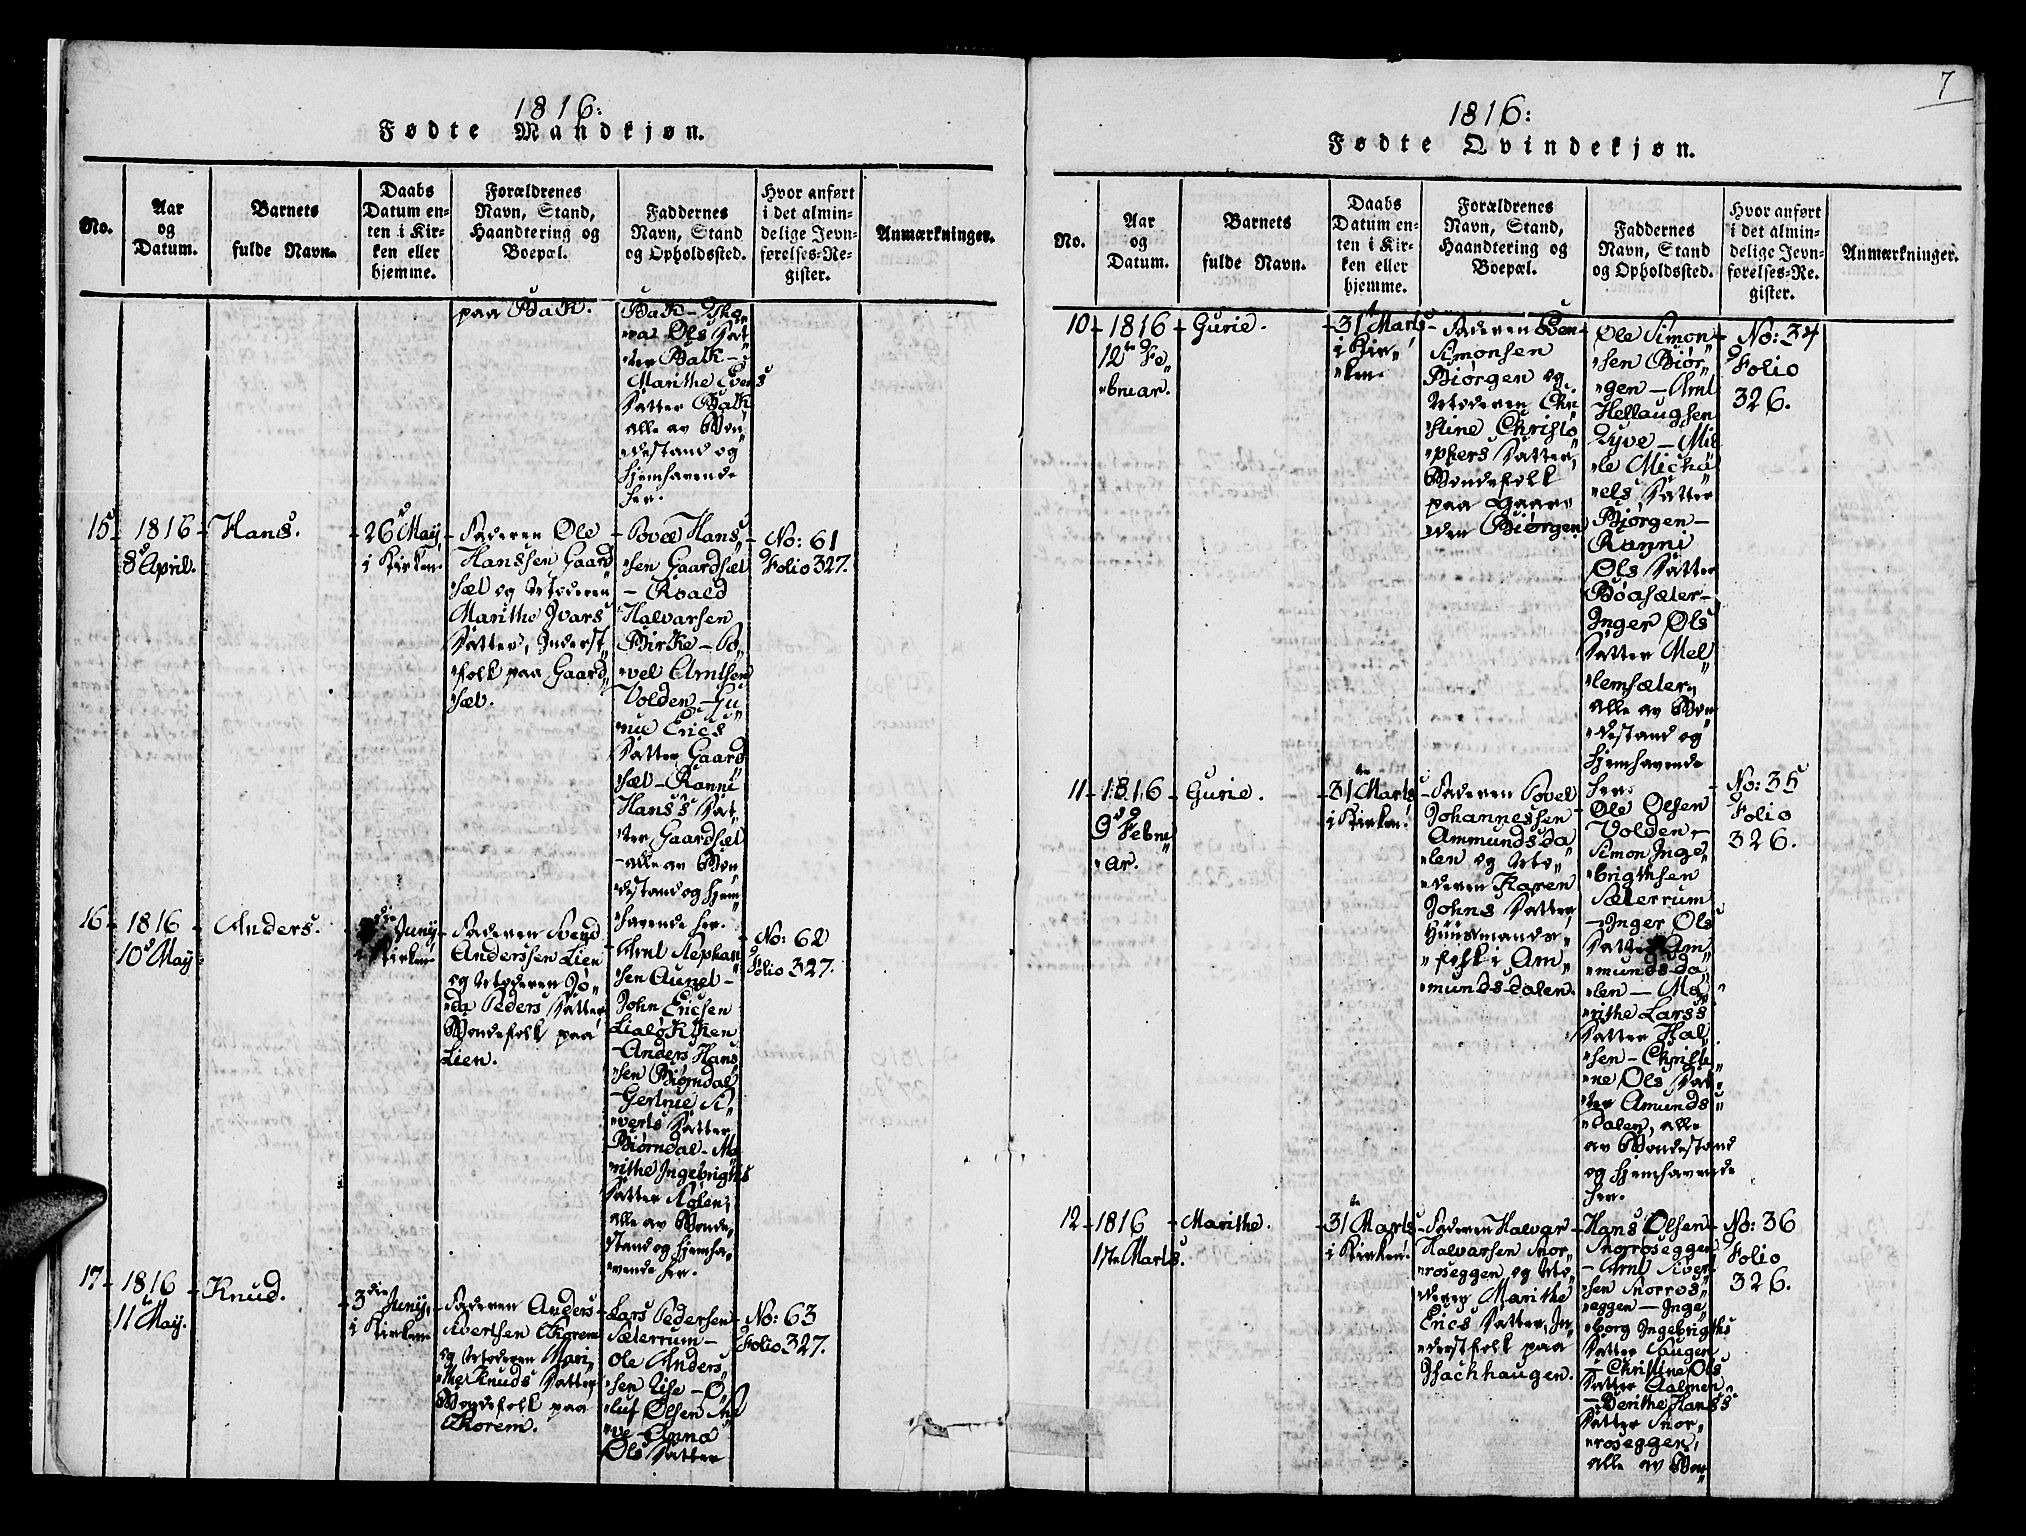 1816:
Fødte Mandkjøn.
No.
Aar
og
Datum.
Barnets
fulde Navn.
Daabs
Datum en-
ten i Kir-
ken eller
hjemme.
Forældrenes
Navn, Stand,
Haandtering og
Boepæl.
Faddernes
Navn, Stand
og Opholdssted.
Hvor anført
i det almin-
delige Jevn-
førelses-Re-
gister.
Anmærkninger.
paa Bak.
Bak –
Ols Dat„
„ter Bak –
Marithe Evens
Datter Bak
alle av Bon„
„destand og
hjemhavende
her.
15 –
1816 –
8 April.
Hans.
– 26 May
i Kirken.
– Faderen Ole
Hanssen Gaard„
„sæl og Moderen
Marithe Ivars
Datter, Inderst„
„folk paa Gaard„
„sæl.
– Povel Hans„
„sen Gaardsæl
– Roald
Halvarsen
Birke – Po„
„vel Arntsen
Volden – Gu„
„rie Erics
Datter Gaard„
„sæl – Ranni
Hans's Dat„
„ter Gaardsæl
– alle av Bon„
„destand og hjem„
„havende her.
– No: 61
Folio 327.
16 –
1816
10 May
Anders.
die Juny
i Kirken
– Faderen Svend
Anderssen Lien
og Moderen
Peders Datter
Bondefolk paa
Lien.
– Arnt Stephan„
„sen Aunet –
John Ericsen
Lialøkken
– Anders Hans„
„sen Biørndal
– Gertrue Si„
„verts Datter
Biørndal – Ma„
„rithe Ingebrigths
Datter Stølen,
alle av Bonde„
„stand og hjemha„
„vende her.
– No: 62
Folio 327.
17 –
1816
11 May.
– Knud.
– 3 die Juny,
i Kirken
– Faderen Anders
Sivertsen Korem
og Moderen Mari„
„the Knuds Datter
Bondefolk paa
Korem.
– Lars Pedersen
Sæterrum –
Ole Anders„
„sen Lise – O„
„luf Olsen
– Anna
Ols Datter
– No: 63
Folio 327.
7
1816:
Fødte Qvindekjøn.
No.
Aar
og
Datum.
Barnets
fulde Navn.
Daabs
Datum en-
ten i Kir-
ken eller
hjemme.
Forældrenes
Navn, Stand,
Haandtering og
Boepæl.
Faddernes
Navn, Stand
og Opholdssted.
Hvor anført
i det almin-
delige Jevn-
førelses-Re-
gister.
Anmærkninger.
10 –
1816 –
12te Fe„
„bruar.
Gurie.
– 31te Marts
i Kir„
„ken.
– Faderen Even
Simonsen
Biørgen og
Moderen Chri„
„stine Christo„
„phers Datter,
Bondefolk
paa Gaar„
„den Biørgen
– Ole Simon„
„sen Biør„
„gen – Arnt
Hellaugsen
Dyve – Mil„
„le Micha„
„els Datter
Biørgen –
Ranni
Ols Datter
Bøasæter –
Inger Ols
Datter Mel„
„lemsæter,
alle av Bon„
„destand og
hjemhavende
her.
– No: 34
Folio
326.
11 –
1816 –
9 Febru„
„ar.
Gurie.
– 31te Marts
i Kirken.
– Faderen Povel
Johannessen
Ammundsda„
„len og Mo„
„deren Karen
Johns Datter
Huusmands„
„folk i Am„
„mundsdalen.
Ole Olsen
Volden –
Simon Inge„
„brigthsen
Sæterrum
– Inger Ols
Datter Am„
„mundsda„
„len – Ma„
„rithe Larss
Datter Hal„
„sen – Christi„
„ne Ols Dat„
„ter Amunds„
„dalen, alle
av Bondestand
og hjemhavende
her.
– No: 35
Folio
326.
12 –
1816
17te Marts.
– Marithe.
– 31te Marts
i Kirken.
– Faderen Halvar
Halvarsen Snor„
„roseggen og Mo„
„deren Marithe
Erics Datter, In„
„derstfolk paa
Bachhaugen.
– Hans Olsen
Snorroseggen
– Arnt Siver„
„sen Snorros„
„eggen – Inge„
„borg Ingebrigths
Datter Haugen
– Christine Ols
Datter Aalmen
– Berithe Hans's
Datter Snor„
„roseggen,
alle av Bon„
– No: 36
Folio
326.